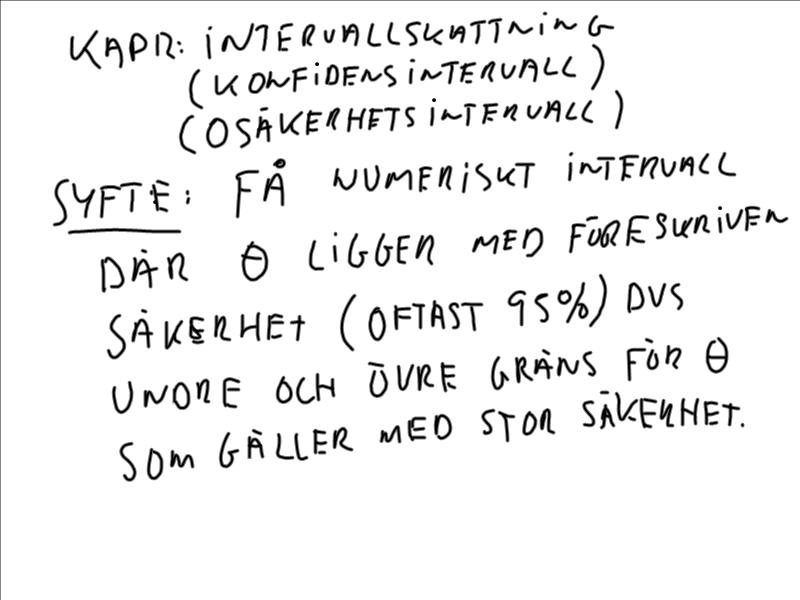 KAP12: INTERVALLSKATTNING
(KONFIDENSINTERVALL)
(OSÄKERHETSINTERVALL)
SYFTE: FÅ NUMERISKT INTERVALL
DÄR θ LIGGER MED FÖRESKRIVEN
SÄKERHET (OFTAST 95%) DVS
UNDRE OCH ÖVRE GRÄNS FÖR θ
SOM GÄLLER MED STOR SÄKERHET.